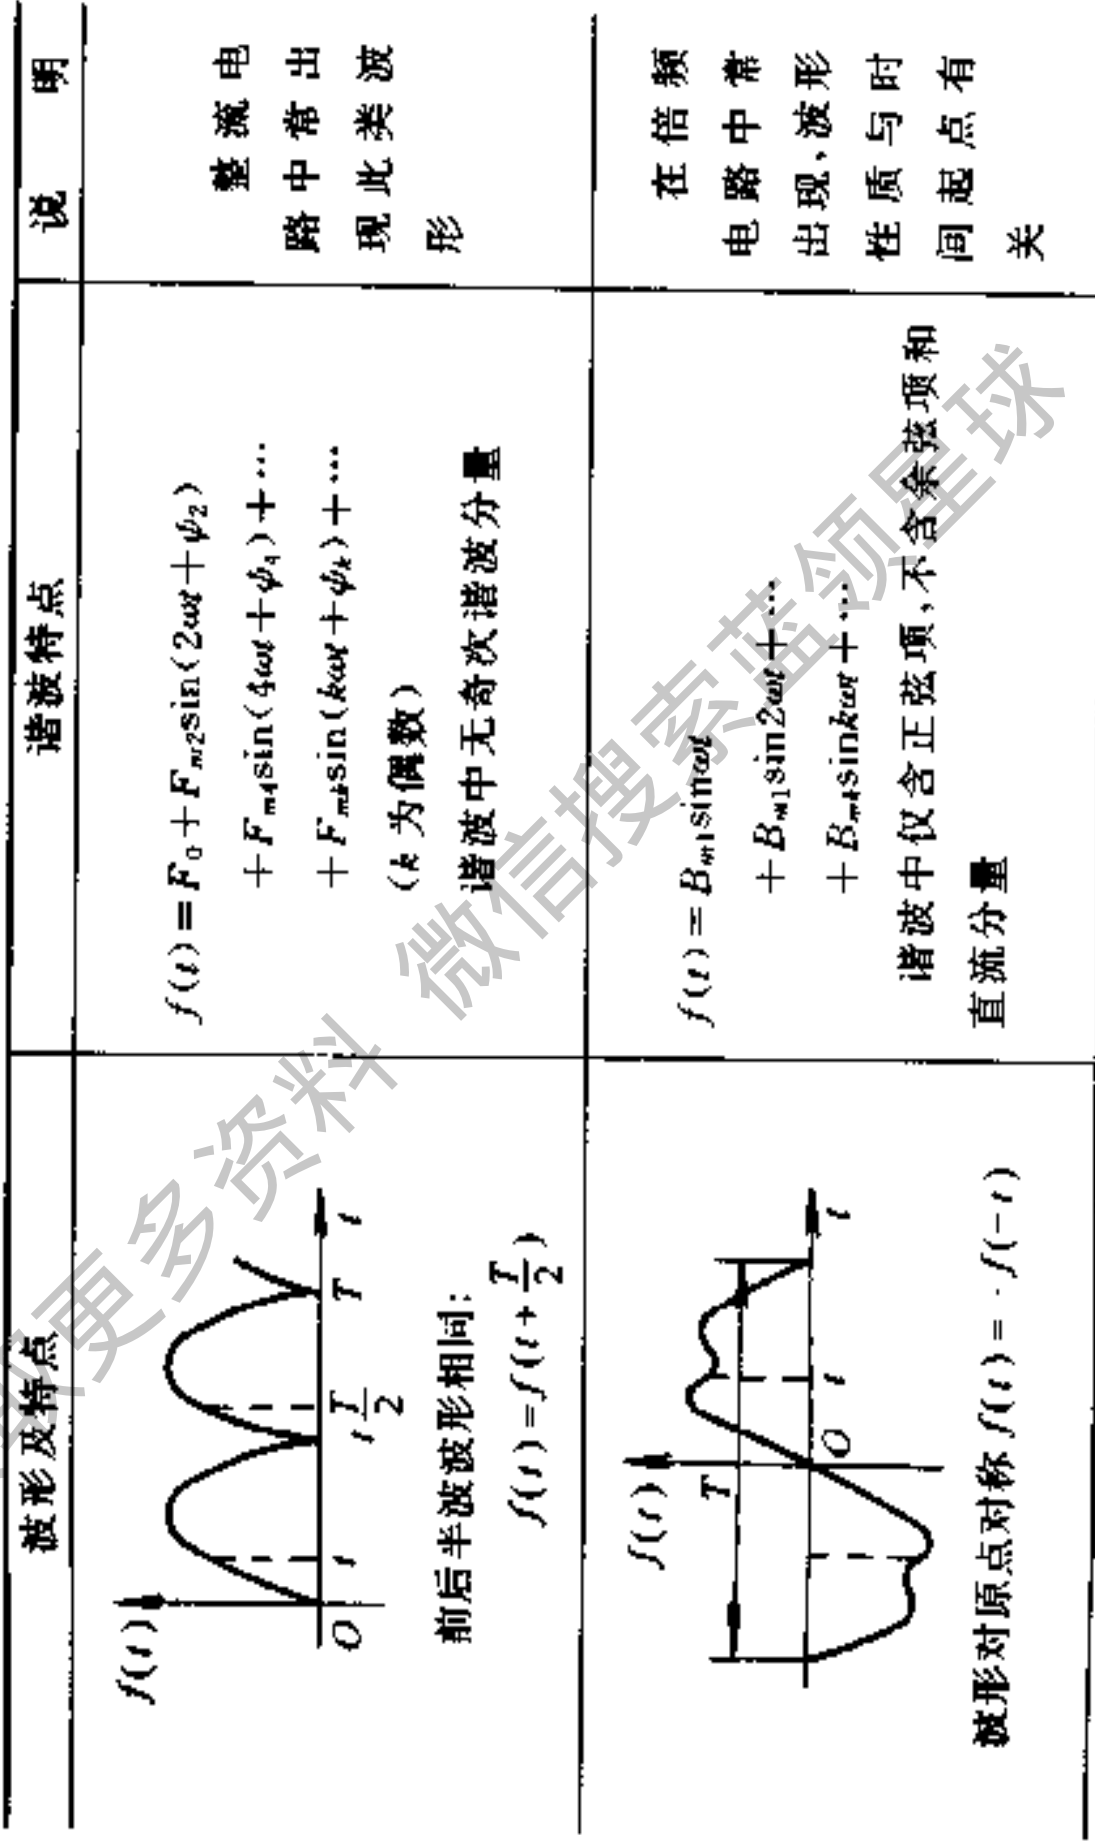 波形及特点
谐波特点
说 明
f(t)
O
t
t
T/2
T
t
前后半波波形相同:
f(t)=f(t+T/2)
f(t)=F₀+Fₘ₂sin(2ωt+ψ₂)
+Fₘ₄sin(4ωt+ψ₄)+…
+Fₘₖsin(kωt+ψₖ)+…
(k 为偶数)
谐波中无奇次谐波分量
整流电
路中常出
现此类波
形
f(t)
T
O
t
t
波形对原点对称 f(t)=-f(-t)
f(t)=Bₘ₁sinωt
+Bₘ₁sin2ωt+…
+Bₘₖsinkωt+…
谐波中仅含正弦项,不含余弦项和
直流分量
在倍频
电路中常
出现,波形
性质与时
间起点有
关
取更多资料 微信搜索蓝领星球